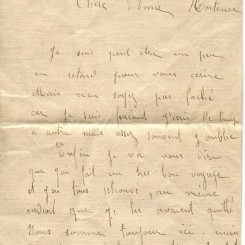 Chère Hortence
Je suis peut être un peu
en retard pour vous écrire
Mais n'en soyez pas faché
car je suis j'écris de temps
à autre mais assez souvent j'oublie
Enfin Je va vous dire
que j'ai fait un très bon voyage
et j'ai tous au même
endroit que je les avaient quitté
Nous somme toujour ici mais